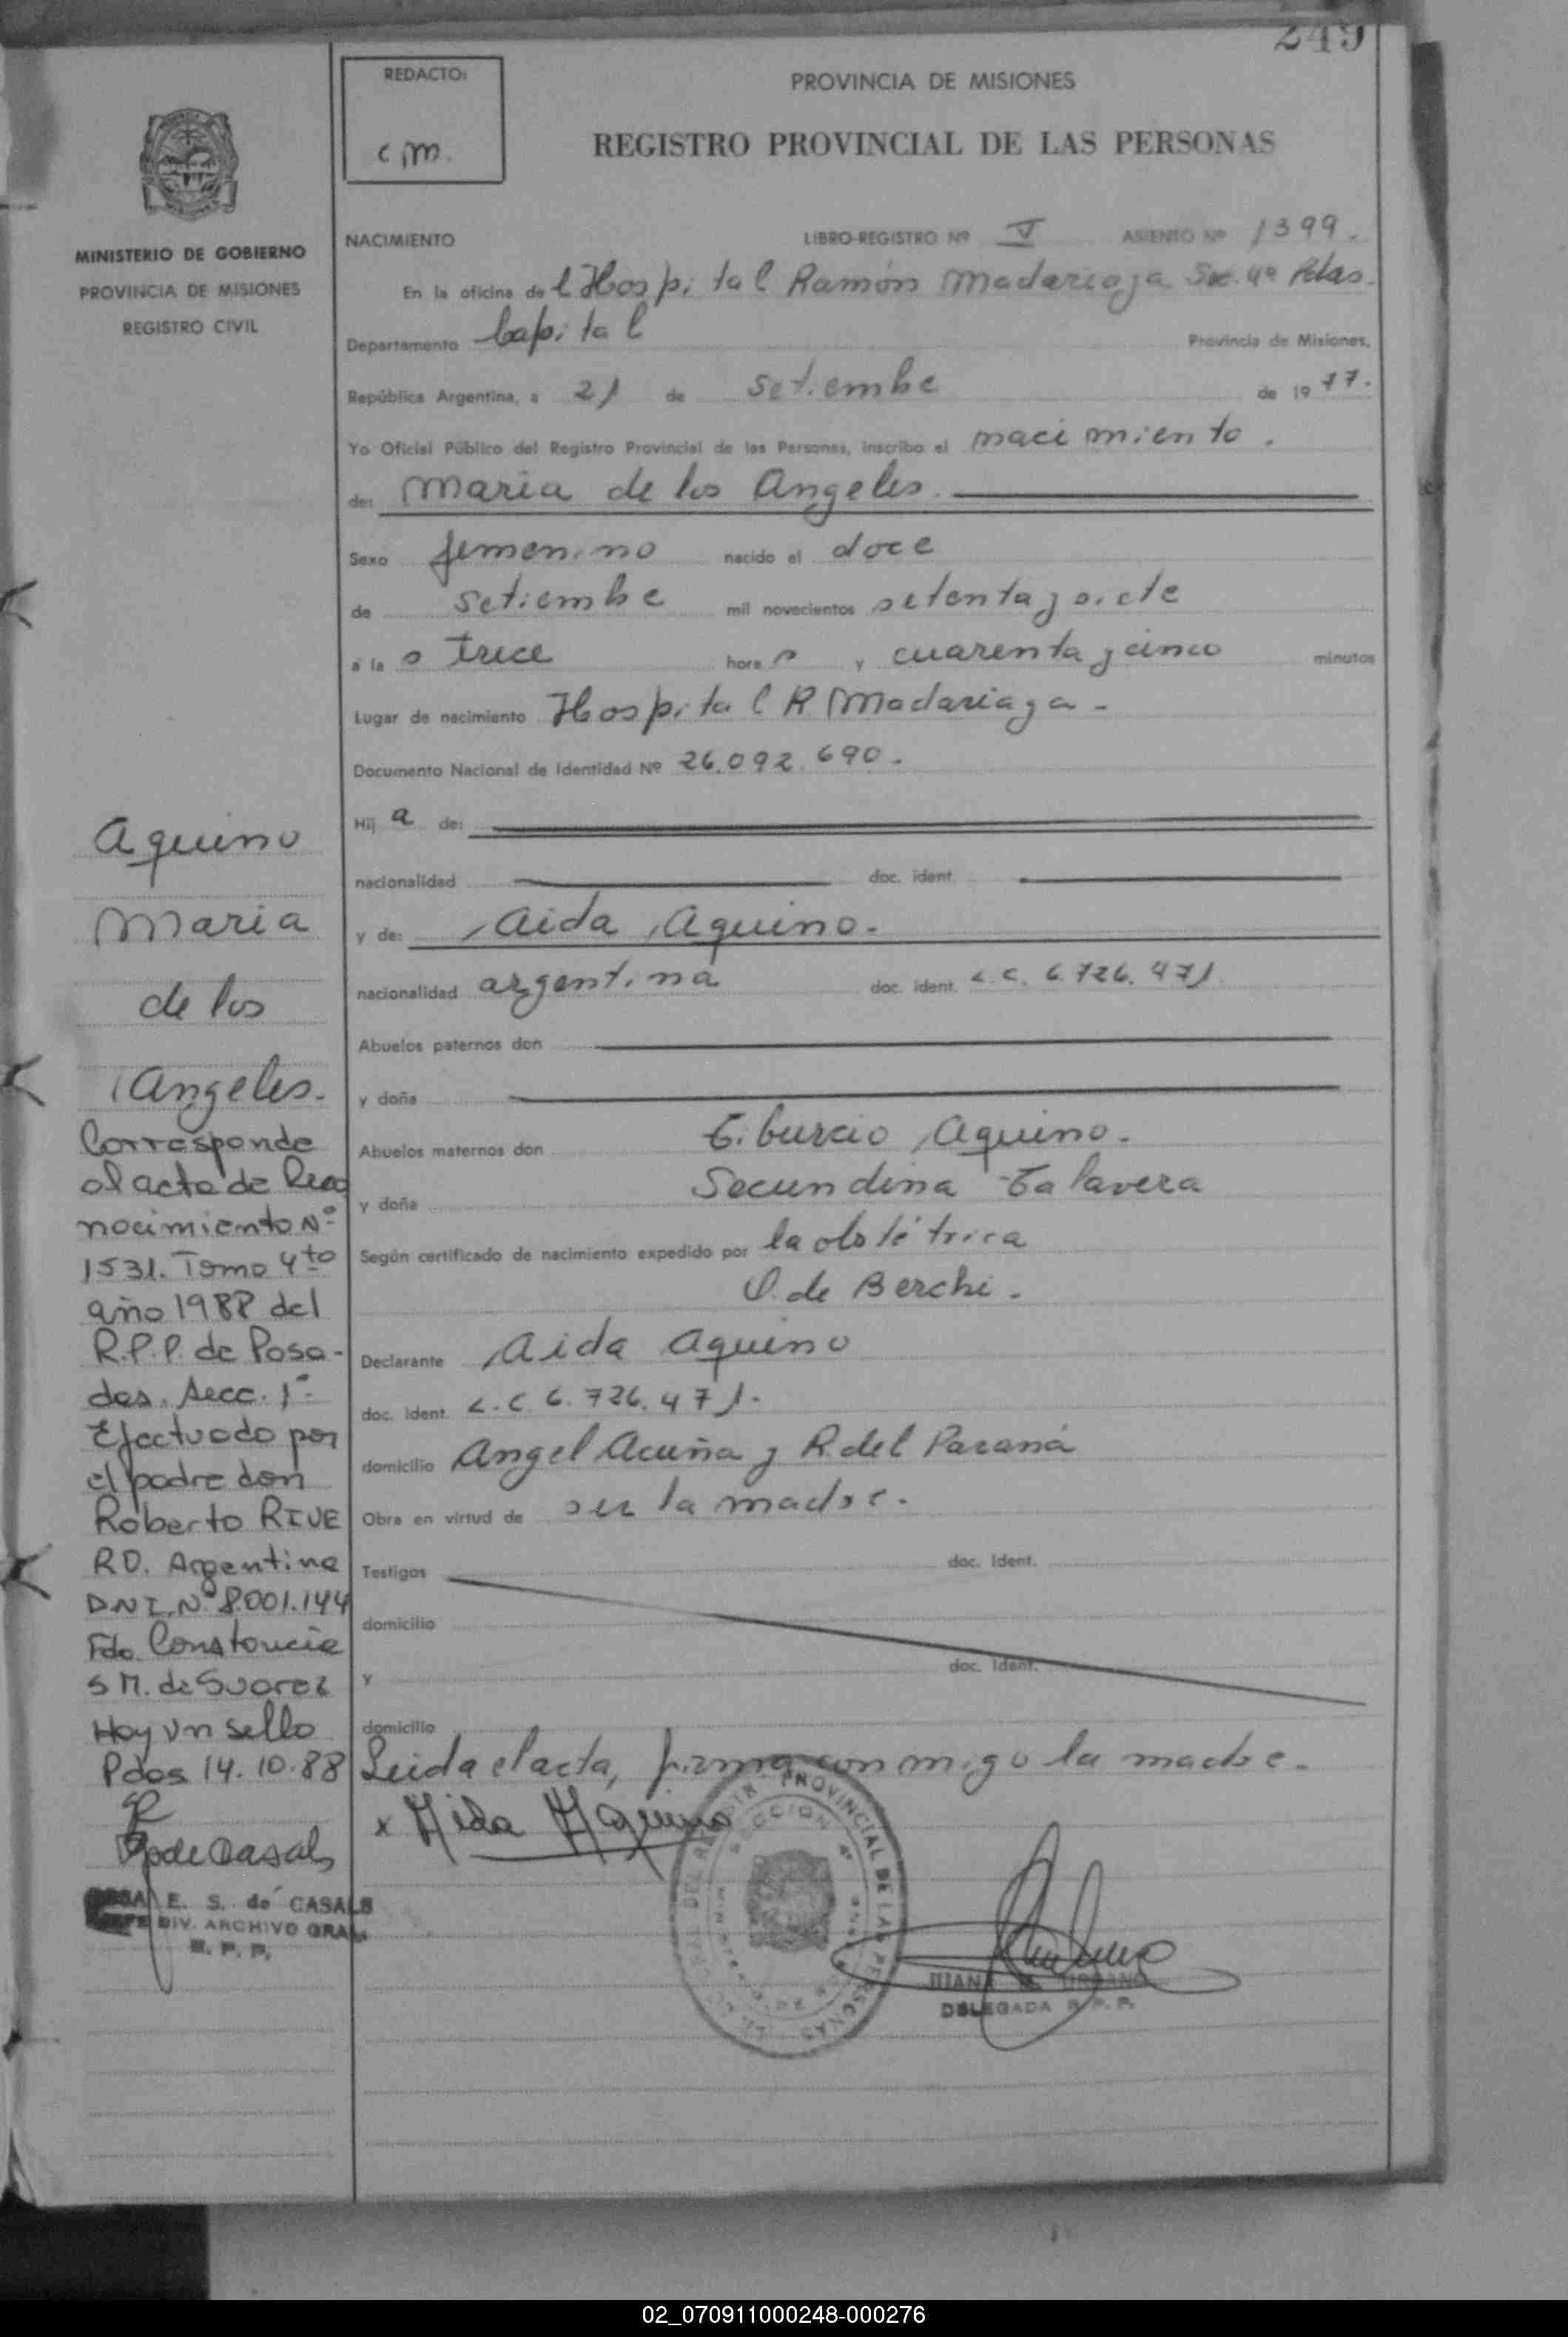 249
REDACTO:
cm.
PROVINCIA DE MISIONES
REGISTRO PROVINCIAL DE LAS PERSONAS
MINISTERIO DE GOBIERNO
PROVINCIA DE MISIONES
REGISTRO CIVIL
NACIMIENTO LIBRO-REGISTRO Nº V ASIENTO Nº 1399.
En la oficina de l Hospital Ramón Madariaga Sec. 4ª Pdas.
Departamento Capital Provincia de Misiones,
República Argentina, a 21 de setiembe de 1977.
Yo Oficial Público del Registro Provincial de las Personas, inscribo el nacimiento.
de: Maria de los Angeles.
Sexo femenino nacido el doce
de setiembe mil novecientos setenta y siete
a la s trece hora s y cuarenta y cinco minutos
Lugar de nacimiento Hospital R Madariaga -
Documento Nacional de Identidad Nº 26.092.690.
Hij a de:
nacionalidad doc. ident.
y de: Aida Aquino.
nacionalidad argentina doc. ident. L.C. 6.726.471
Abuelos paternos don
y doña
Abuelos maternos don Tiburcio Aquino.
y doña Secundina Talavera
Según certificado de nacimiento expedido por la obstétrica
de Berchi.
Declarante Aida Aquino
doc. ident. L.C. 6.726.471.
domicilio Angel Acuña y R. del Paraná
Obra en virtud de ser la madre.
Testigos doc. ident.
domicilio
y doc. ident.
domicilio
Leida el acta, firma con migo la madre.
x Aida Aquino
DELEGADA R. P. P.
Aquino
Maria
de los
Angeles.
Corresponde
al acta de Reco
nocimiento Nº
1531. Tomo 4to
año 1988 del
R.P.P. de Posa-
das. Secc. 1ª
Efectuado por
el padre don
Roberto RIVE
RO. Argentina
DNI. Nº 8.001.144
Fdo. Constancia
S M. de Suarez
Hay un sello
Pdas 14.10.88
E. S. de CASALS
DIV. ARCHIVO GRAL
R. P. P.
02_070911000248-000276